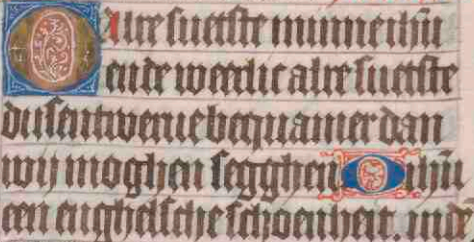 O Alre suetste minne ihũ
ende weerdic alre suetste
dusentwerue bequamer dan
wij moghen segghen O ihũ
een enghelsche schoenheit. mijn